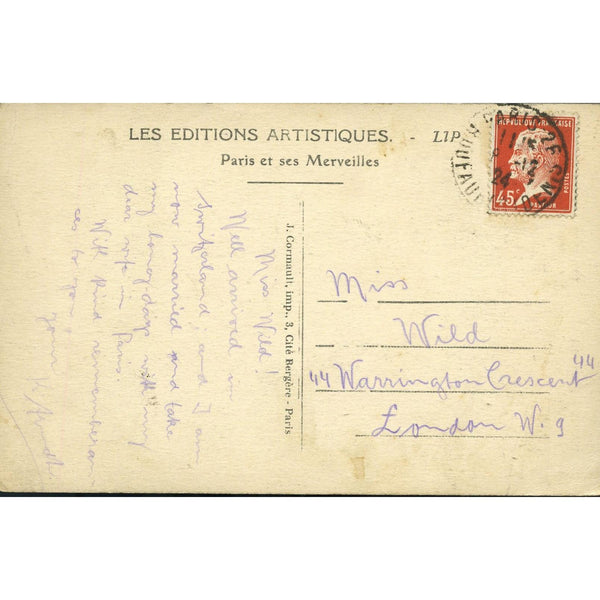 LES EDITIONS ARTISTIQUES. - LIP
Paris et ses Merveilles
REPUBLIQUE FRANCAISE
45c
PASTEUR
POSTES
24
J. Cormault, imp., 3, Cité Bergère - Paris
Miss Wild!
Well arrived in
Switzerland; and I am
now married and take
my honeydays with my
dear wife in Paris.
With kind remembran
ces to you
yours
Miss
Wild
"44 Warrington Crescent "44"
London W. 9